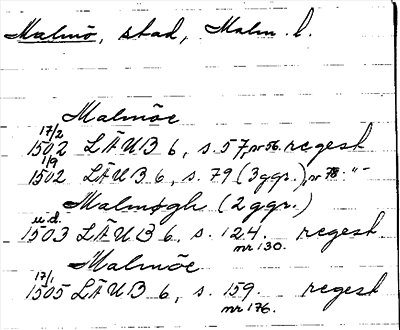 Malmö, stad, Malm. l.
Malmöe
17/2
1502 LÄUB 6, s. 57, nr 56. regest
1/9
1502 LÄUB 6, s. 79 (3 ggr.), nr 78. -"-
Malmøgh (2 ggr.)
u.d.
1503 LÄUB 6, s. 124. regest
nr 130.
Malmöe
17/1
1505 LÄUB 6, s. 159. regest
nr 176.